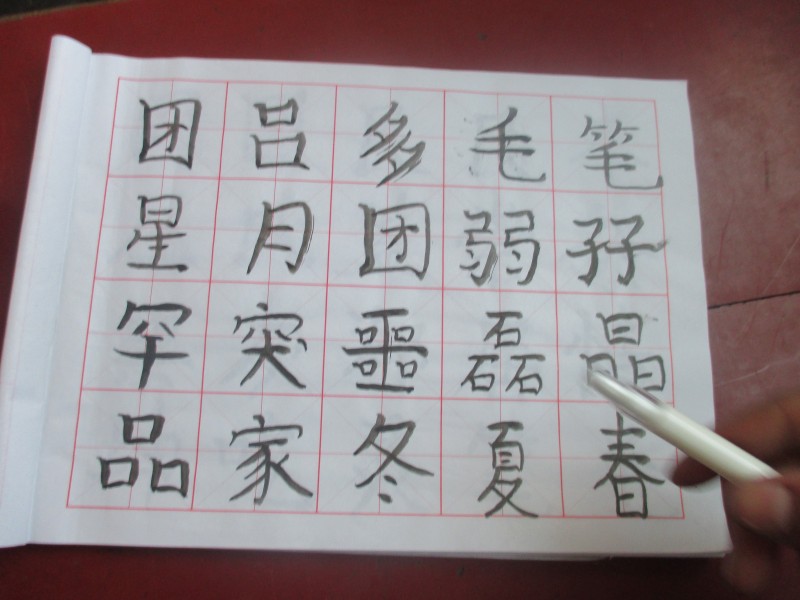 团吕多毛笔
星月团弱孖
罕突噩磊晶
品家冬夏春